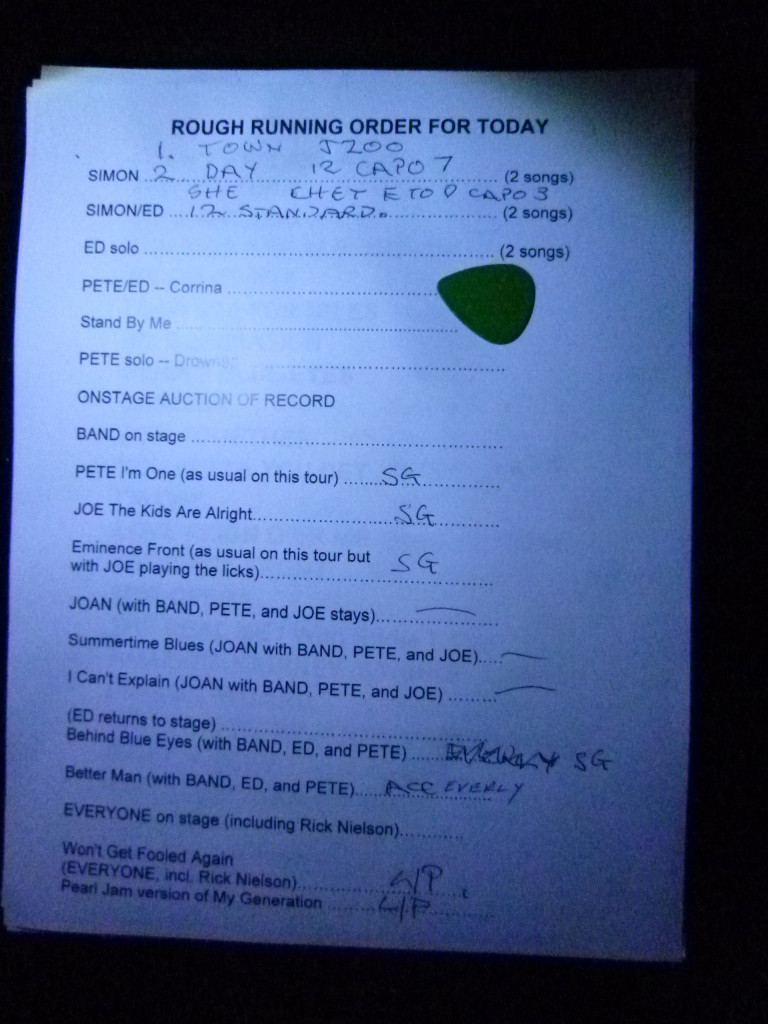 ROUGH RUNNING ORDER FOR TODAY
1. TOWN J200
SIMON 2. DAY 12 CAPO 7 (2 songs)
SHE CHET E TO D CAPO 3
SIMON/ED .... 12 STANDARD. .................... (2 songs)
ED solo ............................................................ (2 songs)
PETE/ED -- Corrina .....................................
Stand By Me ................................................
PETE solo -- Drowned ................................
ONSTAGE AUCTION OF RECORD
BAND on stage ......................................................
PETE I'm One (as usual on this tour) ........SG..............
JOE The Kids Are Alright..........................SG.............
Eminence Front (as usual on this tour but SG
with JOE playing the licks).........................................
JOAN (with BAND, PETE, and JOE stays)......................
Summertime Blues (JOAN with BAND, PETE, and JOE).....
I Can't Explain (JOAN with BAND, PETE, and JOE) .........
(ED returns to stage) ..............................................
Behind Blue Eyes (with BAND, ED, and PETE) ....... SG
Better Man (with BAND, ED, and PETE).....ACC EVERLY
EVERYONE on stage (including Rick Nielson)............
Won't Get Fooled Again
(EVERYONE, incl. Rick Nielson).............. L/P
Pearl Jam version of My Generation .......... L/P